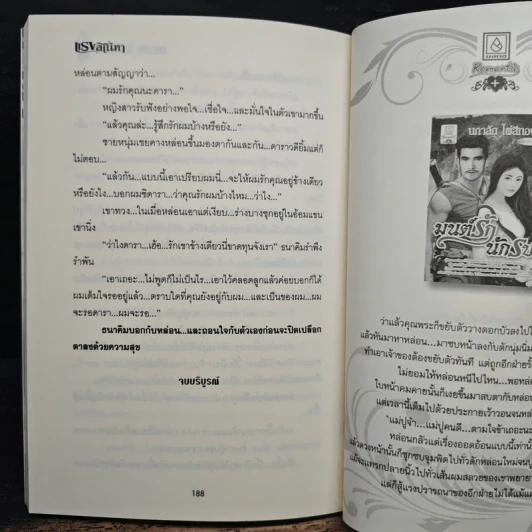 แรงสิเน่หา
หล่อนตามสัญญาว่า...
“ผมรักคุณนะดารา...”
หญิงสาวรับฟังอย่างพอใจ...เชื่อใจ...และมั่นใจในตัวเขามากขึ้น
“แล้วคุณล่ะ...รู้สึกรักผมบ้างหรือยัง...”
ชายหนุ่มเชยคางหล่อนขึ้นมองตากันและกัน...ดาราวดียิ้มแต่ก็
ไม่ตอบ...
“แล้วกัน...แบบนี้เอาเปรียบผมนี่...จะให้ผมรักคุณอยู่ข้างเดียว
หรือยังไง...บอกผมซิดารา...ว่าคุณรักผมบ้างไหม...ว่าไง...”
เขาทวง...ในเมื่อหล่อนเอาแต่เงียบ...ร่างบางซุกอยู่ในอ้อมแขน
เขานิ่ง
“ว่าไงดารา...เฮ้อ...รักเขาข้างเดียวนี่ขาดทุนจังเรา” ธนาคิมรำพึง
รำพัน
“เอาเถอะ...ไม่พูดก็ไม่เป็นไร...เอาไว้คลอดลูกแล้วค่อยบอกก็ได้
ผมเต็มใจรออยู่แล้ว...ตราบใดที่คุณยังอยู่กับผม...และเป็นของผม...ผม
จะรอดารา...ผมจะรอ...”
ธนาคิมบอกกับหล่อน...และถอนใจกับตัวเองก่อนจะปิดเปลือก
ตาลงด้วยความสุข
จบบริบูรณ์
188
Romantic
นภาลัย ไผ่สีทอง
มนต์รัก
นักรบ
ว่าแล้วคุณพระก็ขยับตัววางดอกบัวลงไป
แล้วหันมาหาหล่อน...มาซบหน้าลงกับตักนุ่มนิ่ม
ทำเอาเจ้าของต้องขยับตัวทันที แต่ถูกอีกฝ่าย
ไม่ยอมให้หล่อนหนีไปไหน...
ใบหน้าคมคายนั้นก็เงยขึ้นมาสบตากับหล่อน
แต่เวลานี้เต็มไปด้วยประกายเร้าวอนจน
“แม่ปู่จ๋า...แม่ปู่คนดี...ตามใจข้าเถอะนะ
หล่อนกลัวแต่เรื่องออดอ้อนแบบนี้เท่านั้น
แล้วดวงหน้านั้นก็ซุกซบจุมพิตไปทั่วตักหล่อนใหม่
แม้จะแทรกปลายนิ้วไปทั่วเส้นผมสลวยของเขา
แต่ก็สู้แรงปรารถนาของอีกฝ่ายไม่ได้